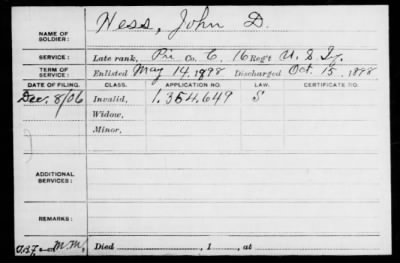 NAME OF SOLDIER: Hess, John D.
SERVICE: Late rank, Pri Co. C. 16 Reg't U. S. Inf.
TERM OF SERVICE: Enlisted May 14, 1898 Discharged Oct. 15, 1898
DATE OF FILING. CLASS. APPLICATION NO. LAW. CERTIFICATE NO.
Dec. 8/06 Invalid, 1.354.649 S
Widow,
Minor,
ADDITIONAL SERVICES:
REMARKS:
M.M. Died , 1 , at